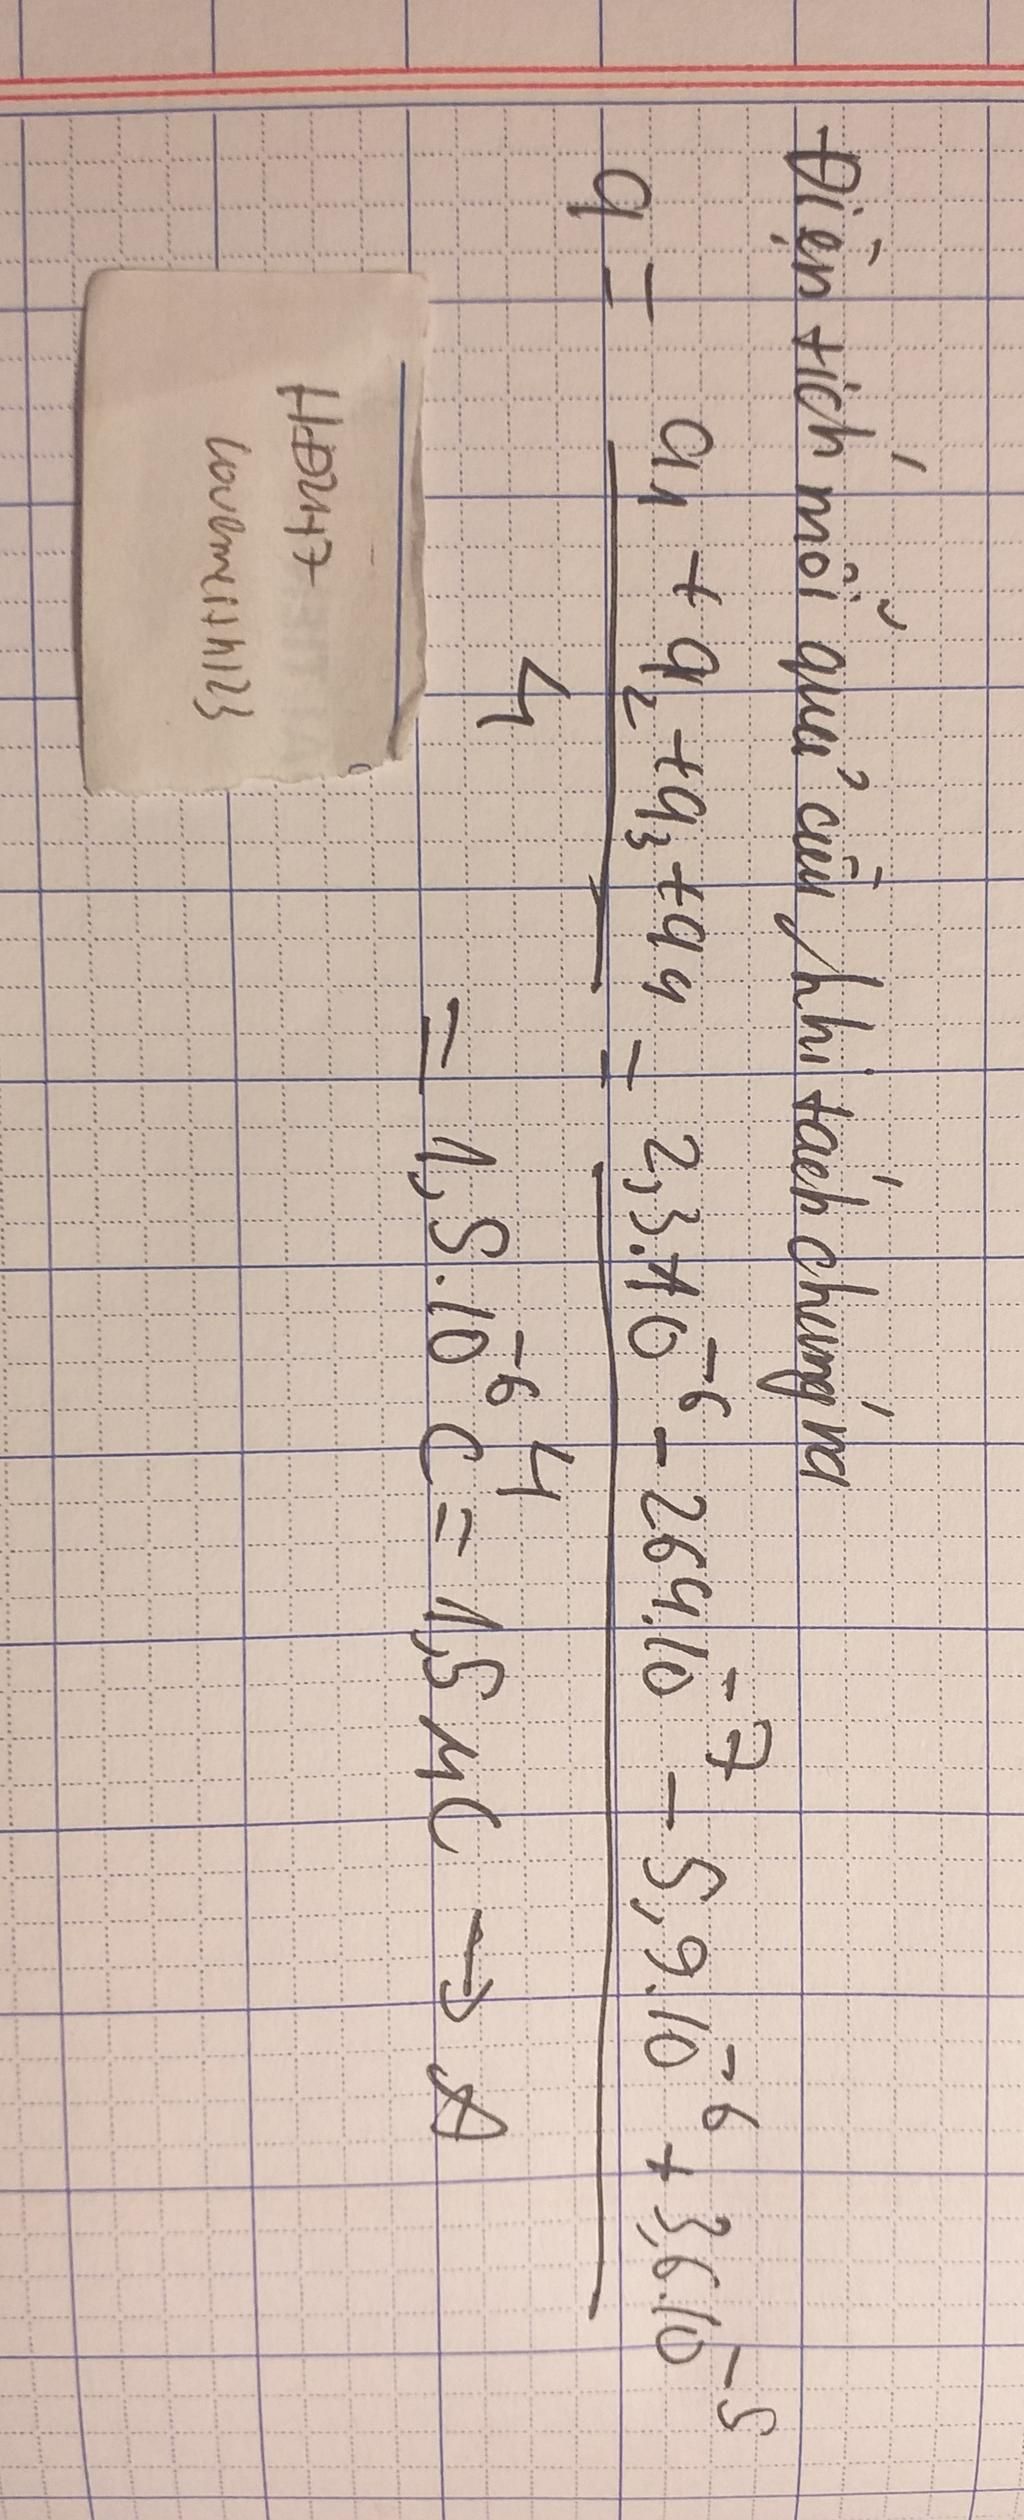 Điện tích mỗi quả cầu khi tách chúng ra
q = q1 + q2 + q3 + q4 / 4 = 2,3.10⁻⁶ - 264.10⁻⁷ - 5,9.10⁻⁶ + 3,6.10⁻⁵ / 4
= 1,5.10⁻⁶ C = 1,5 μC → A